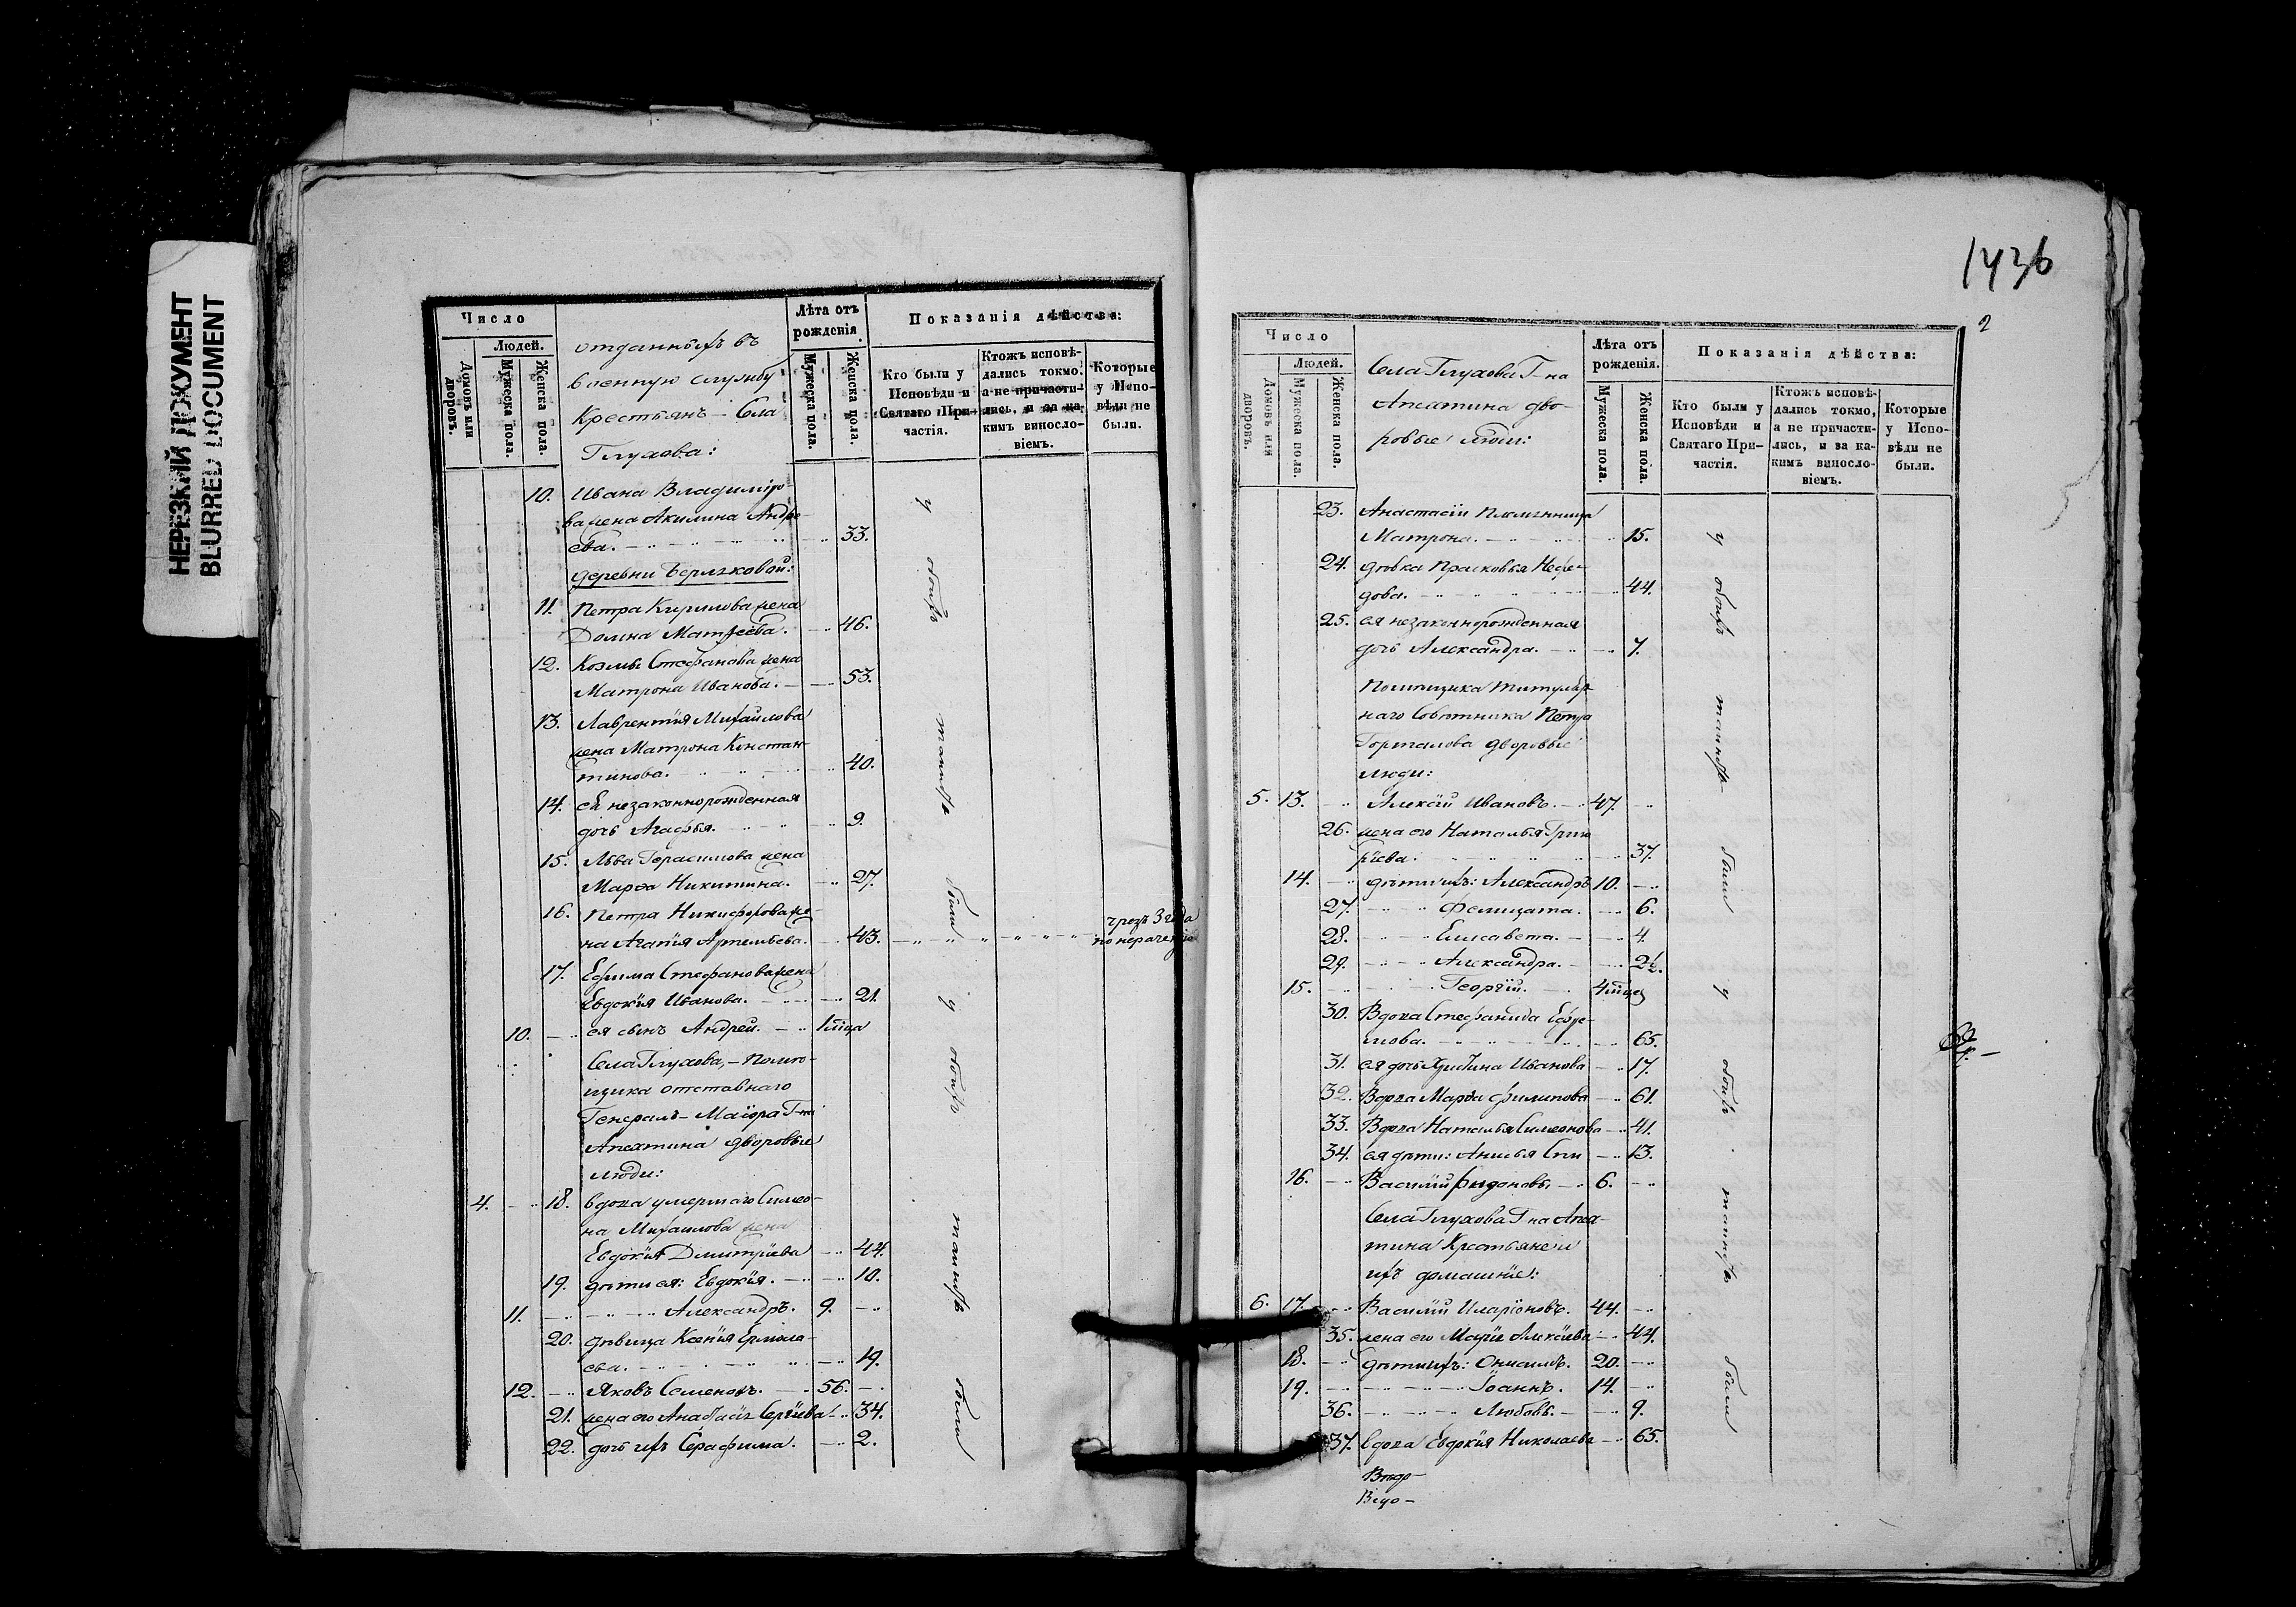 НЕРЕЗКИЙ ДОКУМЕНТ
BLURRED DOCUMENT
Число
Людей.
Домовъ или дворовъ.
Мужеска пола.
Женска пола.
отданныхъ въ
военную службу
Крестьянъ – Села
Глухова:
Лѣта отъ рожденія
Мужеска пола.
Женска пола.
Показанія дѣйства:
Кто были у Исповѣди и Святаго Причастія.
Ктожъ исповѣдались токмо, а не причастились, и за какимъ винословіемъ.
Которые у Исповѣди не были.
10. Ивана Владиміро-
ва жена Акилина Андре-
ева. 33.
деревни Берляковой:
11. Петра Кирилова жена
Домна Матѳеева. 46.
12. Козмы Стефанова жена
Матрона Иванова. 53.
13. Лаврентія Михайлова
жена Матрона Констан-
тинова. 40.
14. ея незаконнорожденная
дочь Агафья. 9.
15. Льва Герасимова жена
Марѳа Никитина. 27.
16. Петра Никифорова же-
на Агапія Артемьева. 43. чрезъ 3 года
по нераченію
17. Ефима Стефанова жена
Евдокія Иванова. 21.
10. ея сынъ Андрей. 1 мца
Села Глухова, – Помѣ-
щика отставнаго
Генералъ-Маіора Г-на
Апехтина дворовые
люди:
4. 18. вдова умершаго Симео-
на Михаилова жена
Евдокія Димитріева 44.
19. дѣти ея: Евдокія. 10.
11. Александръ. 9.
20. дѣвица Ксенія Ермола-
ева. 19.
12. Яковъ Семеновъ. 56.
21. жена его Анастасія Сергіева 34.
22. дочь ихъ Серафима. 2.
у обоихъ таинствъ были
у обоихъ таинствъ были
1436
2
Число
Людей.
Домовъ или дворовъ.
Мужеска пола.
Женска пола.
Села Глухова Г-на
Апехтина дво-
ровые люди:
Лѣта отъ рожденія.
Мужеска пола.
Женска пола.
Показанія дѣйства:
Кто были у Исповѣди и Святаго Причастія.
Ктожъ исповѣдались токмо, а не причастились, и за какимъ винословіемъ.
Которые у Исповѣди не были.
23. Анастасіи племянница
Матрона. 15.
24. дѣвка Прасковья Нефе-
дова. 44.
25. ея незаконнорожденная
дочь Александра. 7.
Помѣщика Титуляр-
наго Совѣтника Петра
Горталова дворовые
люди:
5. 13. Алексій Ивановъ. 47.
26. жена его Наталья Григо-
рьева. 37.
14. дѣти ихъ: Александръ 10.
27. Фелицата. 6.
28. Елисавета. 4.
29. Александра. 2½.
15. Георгій. 4 мца
30. Вдова Стефанида Ефре-
мова. 65.
31. ея дочь Христина Иванова 17.
32. Вдова Марѳа Филипова 61.
33. Вдова Наталья Симеонова 41.
34. ея дѣти: Анисья 13.
16. Василій 6.
Села Глухова Г-на Апех-
тина Крестьяне и
ихъ домашніе:
6. 17. Василій Иларіоновъ. 44.
35. жена его Марія Алексіева 44.
18. дѣти ихъ: Онисимъ. 20.
19. Іоаннъ. 14.
36. Любовь. 9.
37. вдова Евдокія Николаева 65.
у обоихъ таинствъ были
у обоихъ таинствъ были